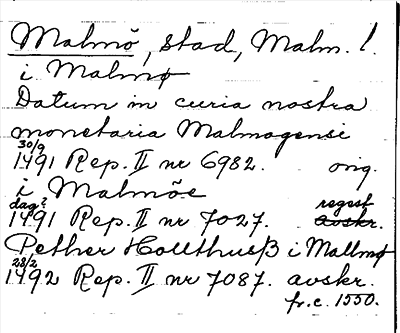 Malmö, stad, Malm. l.
i Malmø
Datum in curia nostra
monetaria Malmogensi
30/9
1491 Rep. II nr 6982. orig.
i Malmöe
dag? regest
1491 Rep. II nr 7027. avskr.
Pether Hollthusß i Mallmø
28/2
1492 Rep. II nr 7087. avskr.
fr. c. 1550.